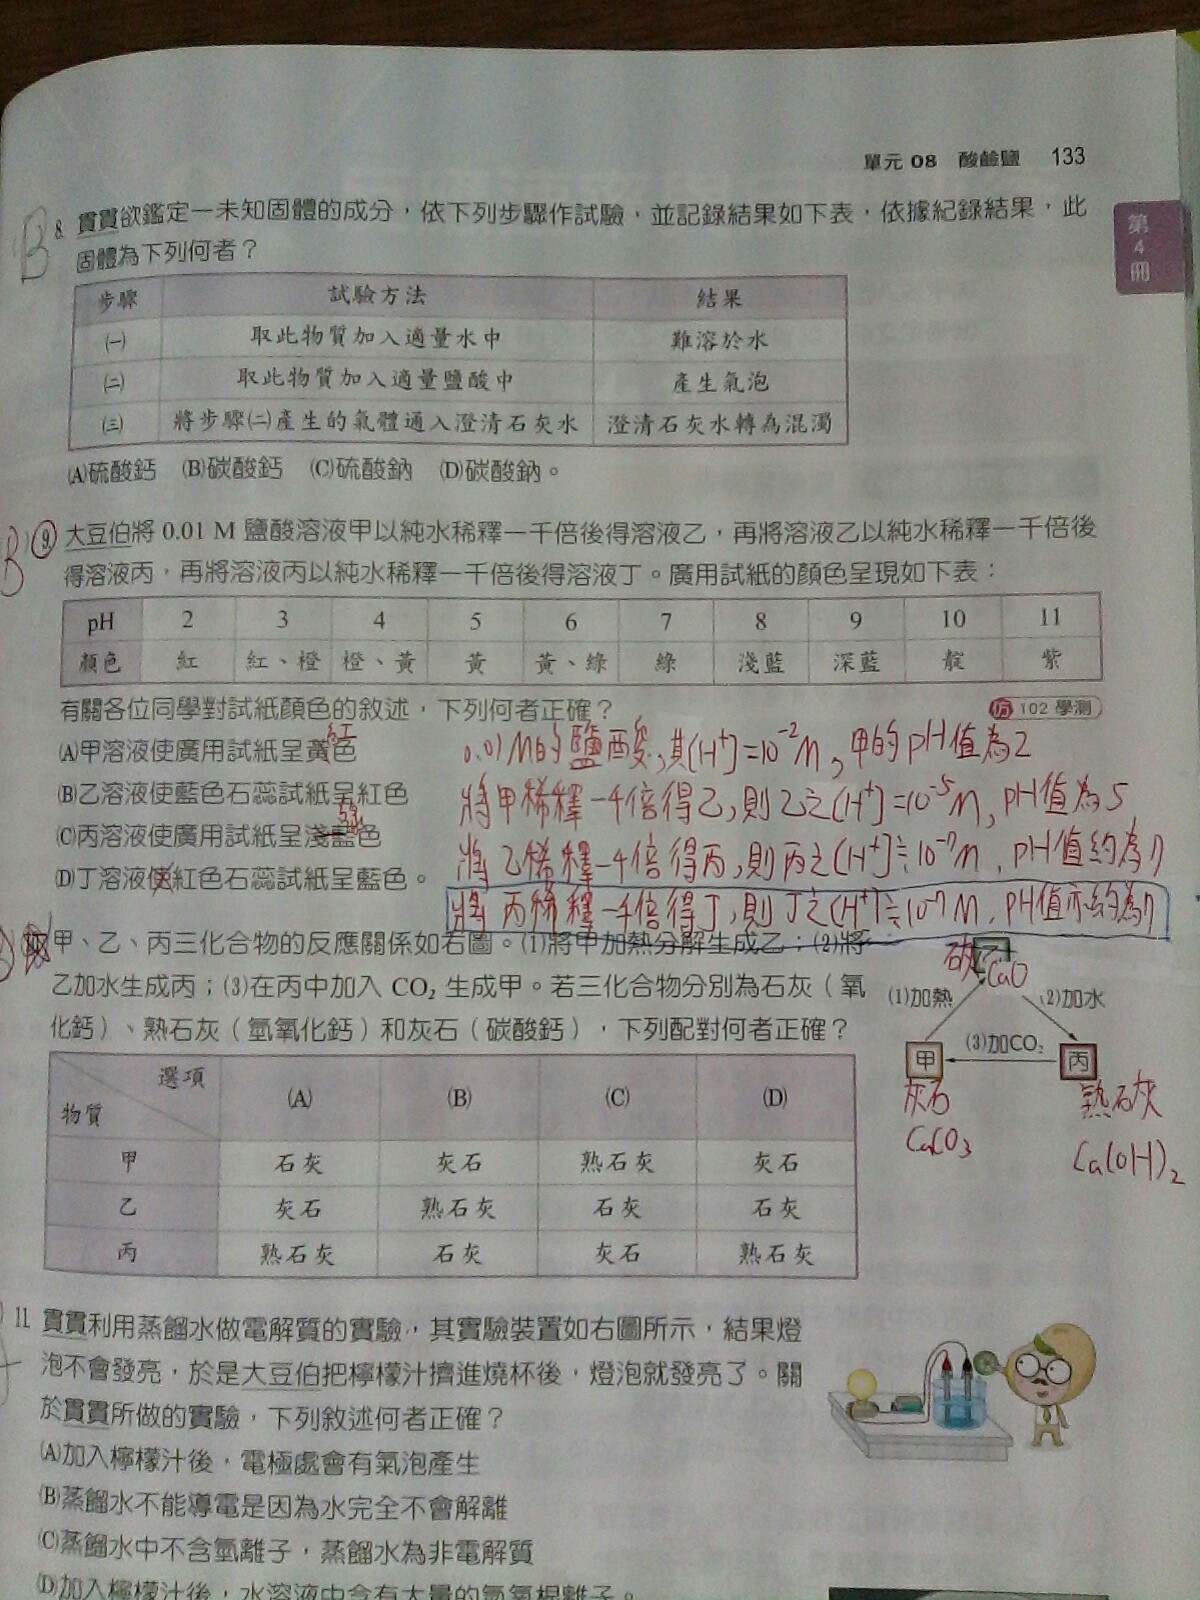 單元 08 酸鹼鹽 133
第4冊
B
8. 貫貫欲鑑定一未知固體的成分，依下列步驟作試驗，並記錄結果如下表，依據紀錄結果，此
固體為下列何者？
步驟 試驗方法 結果
㈠ 取此物質加入適量水中 難溶於水
㈡ 取此物質加入適量鹽酸中 產生氣泡
㈢ 將步驟㈡產生的氣體通入澄清石灰水 澄清石灰水轉為混濁
(A)硫酸鈣 (B)碳酸鈣 (C)硫酸鈉 (D)碳酸鈉。
B
9. 大豆伯將 0.01 M 鹽酸溶液甲以純水稀釋一千倍後得溶液乙，再將溶液乙以純水稀釋一千倍後
得溶液丙，再將溶液丙以純水稀釋一千倍後得溶液丁。廣用試紙的顏色呈現如下表：
pH 2 3 4 5 6 7 8 9 10 11
顏色 紅 紅、橙 橙、黃 黃 黃、綠 綠 淺藍 深藍 靛 紫
有關各位同學對試紙顏色的敘述，下列何者正確？ 仿 102 學測
紅
(A)甲溶液使廣用試紙呈黃色
0.01M的鹽酸,其[H⁺]=10⁻²M,甲的pH值為2
(B)乙溶液使藍色石蕊試紙呈紅色
將甲稀釋一千倍得乙,則乙之[H⁺]=10⁻⁵M,pH值為5
綠
(C)丙溶液使廣用試紙呈淺藍色
將乙稀釋一千倍得丙,則丙之[H⁺]≒10⁻⁷M,pH值約為7
(D)丁溶液使紅色石蕊試紙呈藍色。
將丙稀釋一千倍得丁,則丁之[H⁺]≒10⁻⁷M,pH值亦約為7
甲、乙、丙三化合物的反應關係如右圖。(1)將甲加熱分解生成乙；(2)將
乙加水生成丙；(3)在丙中加入 CO₂ 生成甲。若三化合物分別為石灰（氧
化鈣）、熟石灰（氫氧化鈣）和灰石（碳酸鈣），下列配對何者正確？
乙
CaO
(1)加熱 (2)加水
(3)加CO₂
甲 丙
灰石 熟石灰
CaCO₃ Ca(OH)₂
選項 (A) (B) (C) (D)
物質
甲 石灰 灰石 熟石灰 灰石
乙 灰石 熟石灰 石灰 石灰
丙 熟石灰 石灰 灰石 熟石灰
11. 貫貫利用蒸餾水做電解質的實驗，其實驗裝置如右圖所示，結果燈
泡不會發亮，於是大豆伯把檸檬汁擠進燒杯後，燈泡就發亮了。關
於貫貫所做的實驗，下列敘述何者正確？
(A)加入檸檬汁後，電極處會有氣泡產生
(B)蒸餾水不能導電是因為水完全不會解離
(C)蒸餾水中不含氫離子，蒸餾水為非電解質
(D)加入檸檬汁後，水溶液中含有大量的氫氧根離子。